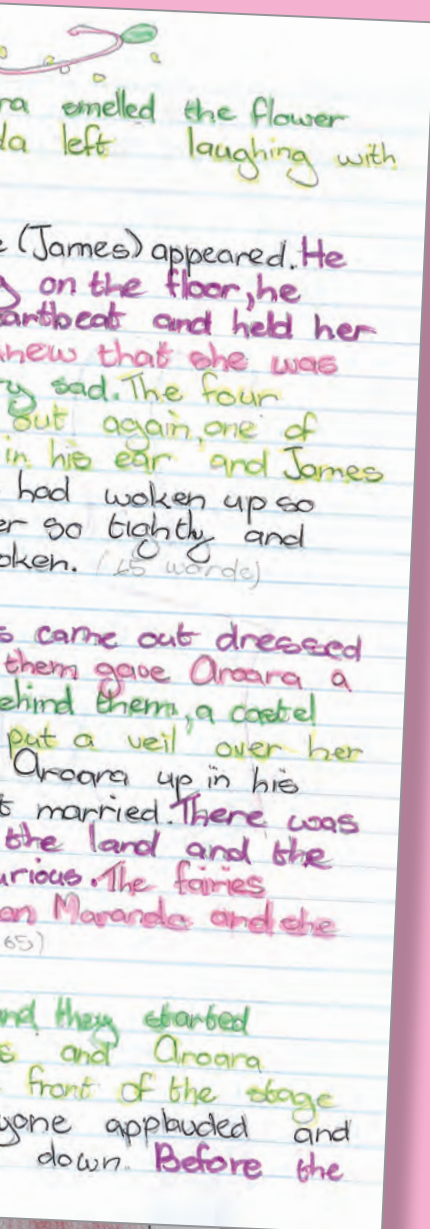 ra smelled the flower
da left laughing with
e (James) appeared. He
g on the floor, he
artbeat and held her
knew that she was
ry sad. The four
out again, one of
in his ear and James
had woken up so
er so tightly and
oken. (45 words)
s came out dressed
them gave Aroara a
ehind them, a castel
put a veil over her
Aroara up in his
t married. There was
the land and the
urious. The fairies
on Maranda and she
65)
and they started
s and Aroara
front of the stage
yone applauded and
down. Before the